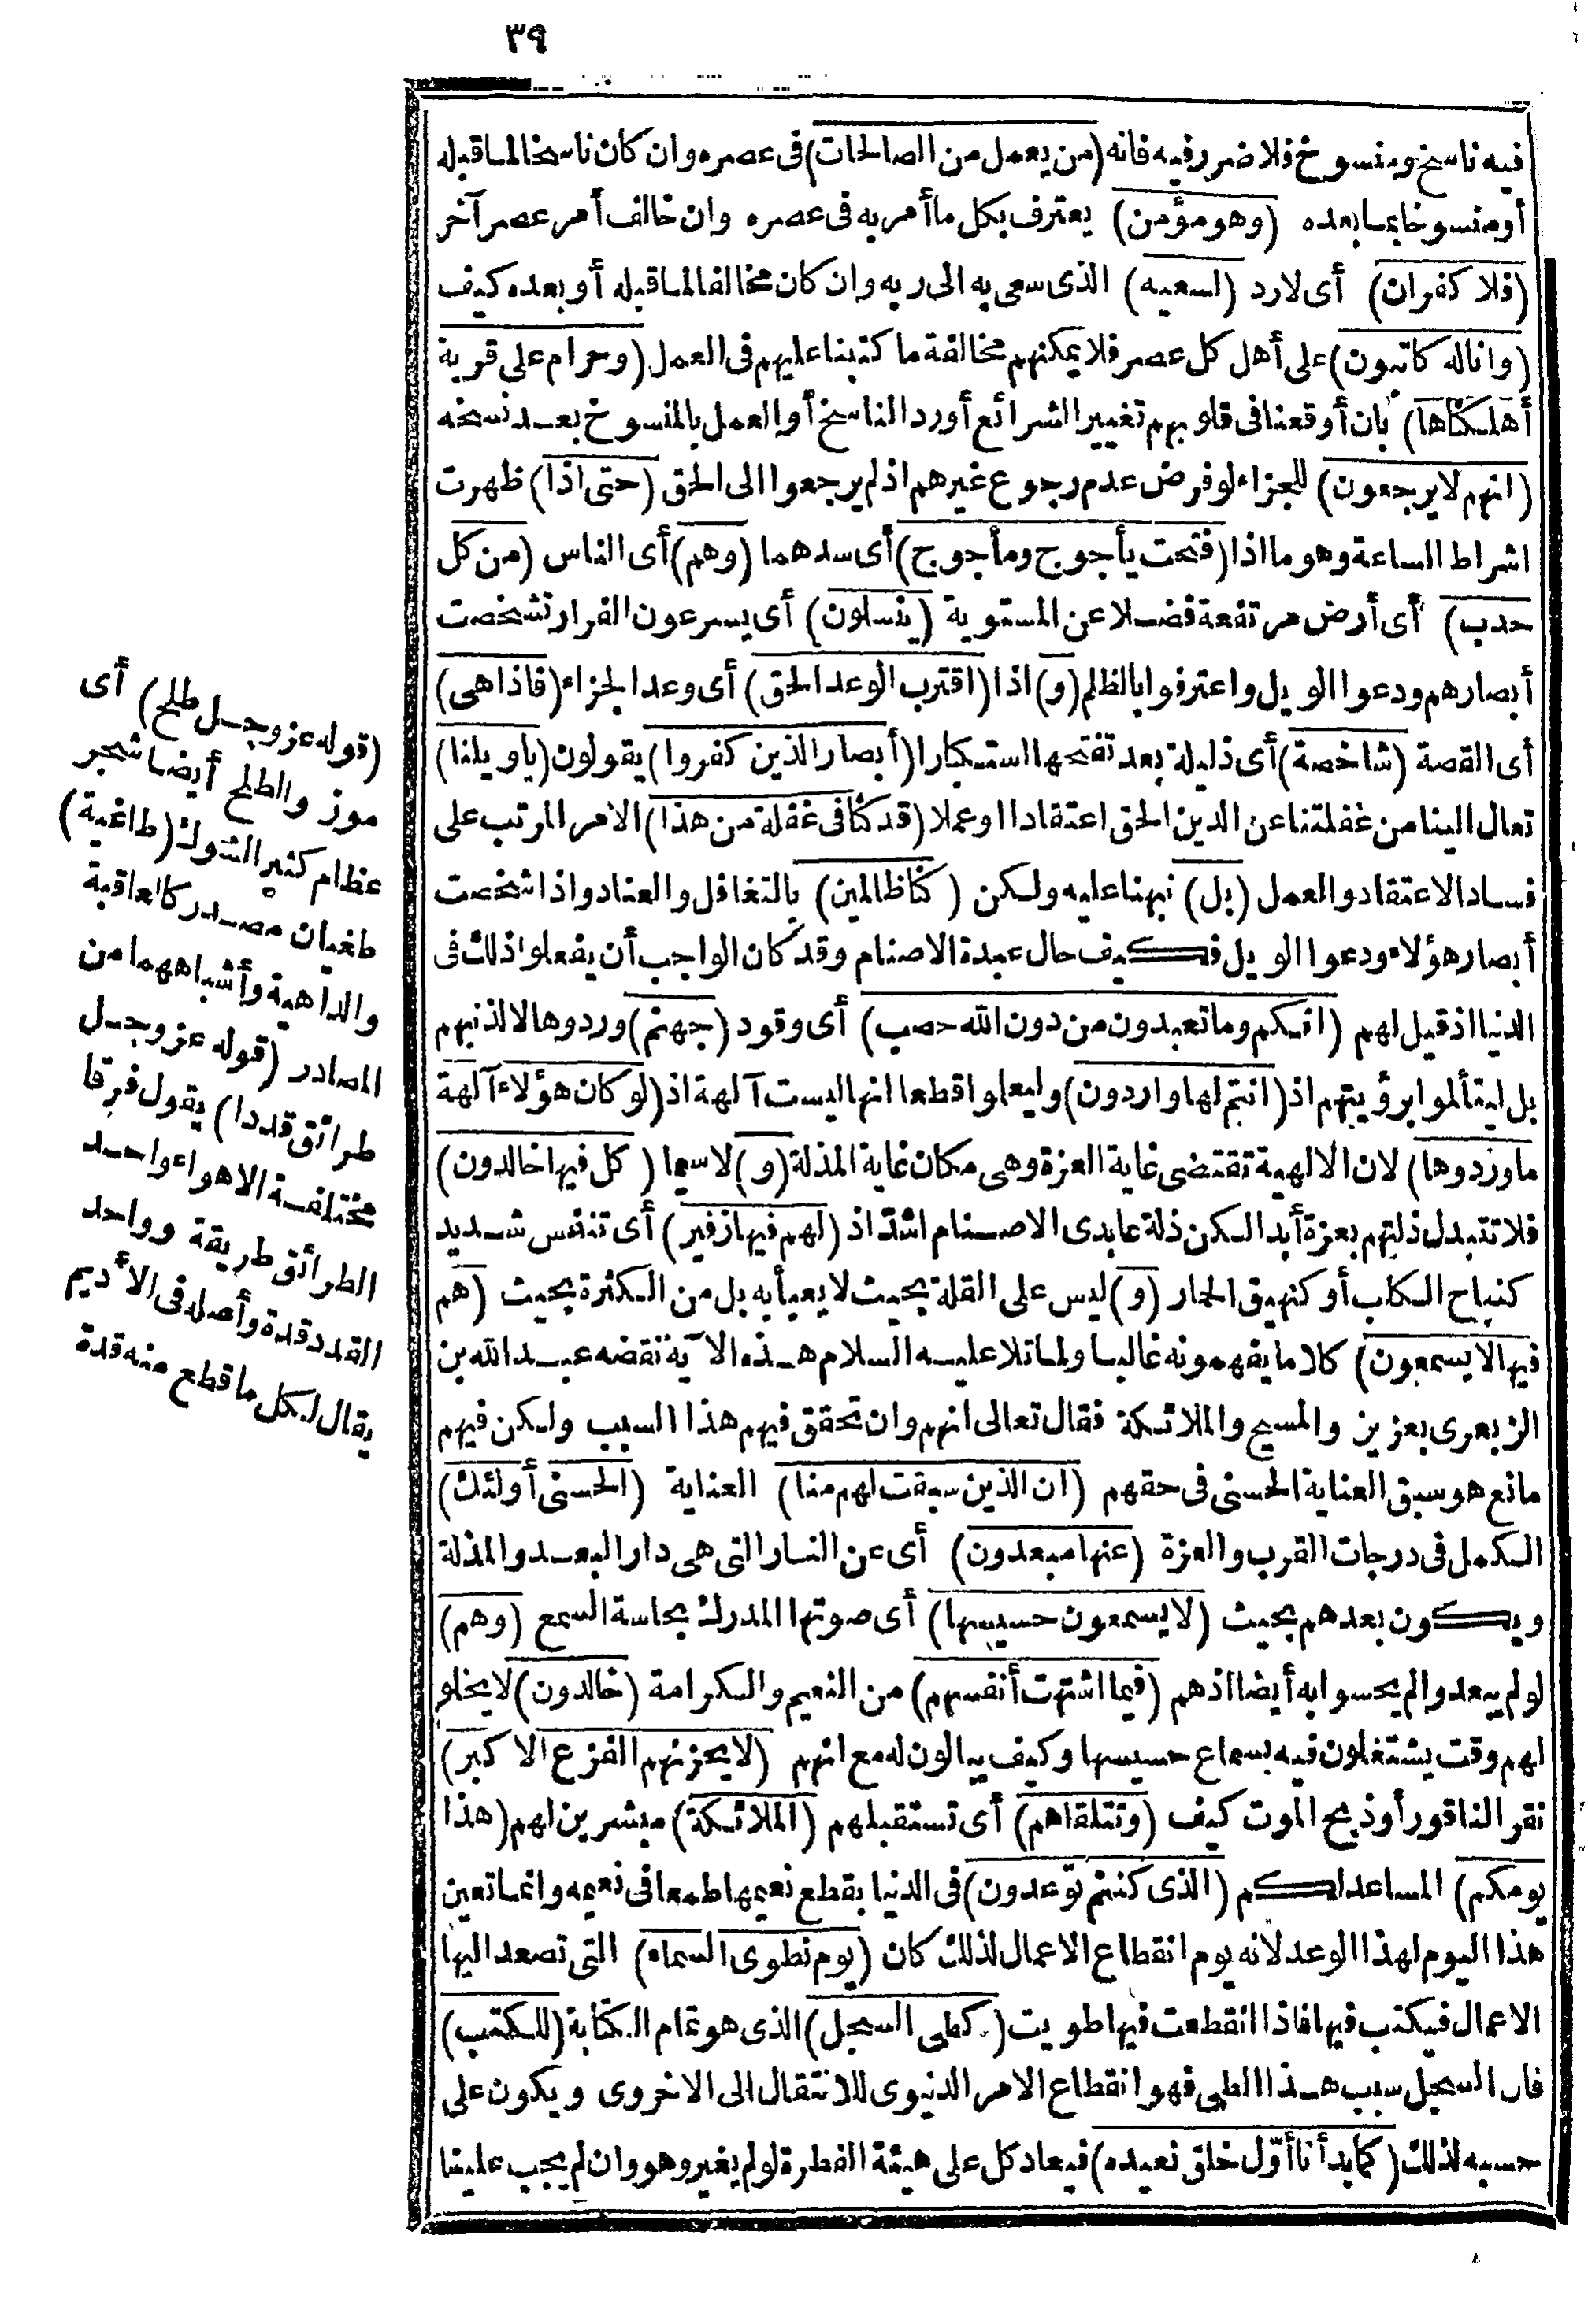 ٣٩
فيه ناسخ ومنسوخ فلا ضرر فيه فانه (من يعمل من الصالحات) فى عصره وان كان ناسخا لما قبله
أو منسوخا بما بعده (وهو مؤمن) يعترف بكل ما أمر به فى عصره وان خالف أمر عصر آخر
(فلا كفران) أى لا رد (لسعيه) الذى سعى به الى ربه وان كان مخالفا لما قبله أو بعده كيف
(وانا له كاتبون) على أهل كل عصر فلا يمكنهم مخالفة ما كتبنا عليهم فى العمل (وحرام على قرية
أهلكناها) بان أوقعنا فى قلوبهم تغيير الشرائع أو رد الناسخ أو العمل بالمنسوخ بعد نسخه
(انهم لا يرجعون) للجزاء لو فرض عدم رجوع غيرهم اذ لم يرجعوا الى الحق (حتى اذا) ظهرت
اشراط الساعة وهو ما اذا (فتحت يأجوج ومأجوج) أى سدهما (وهم) أى الناس (من كل
حدب) أى أرض مرتفعة فضلا عن المستوية (ينسلون) أى يسرعون الفرار تشخصت
أبصارهم ودعوا الويل واعترفوا بالظلم (و) اذا (اقترب الوعد الحق) أى وعد الجزاء (فاذا هى)
أى القصة (شاخصة) أى ذليلة بعد تفتحها استكبارا (أبصار الذين كفروا) يقولون (ياويلنا)
تعال الينا من غفلتنا عن الدين الحق اعتقادا اوعملا (قد كنا فى غفلة من هذا) الامر المرتب على
فساد الاعتقاد والعمل (بل) نبهنا عليه ولكن (كنا ظالمين) بالتغافل والعناد واذا شخصت
أبصار هؤلاء ودعوا الويل فكيف حال عبدة الاصنام وقد كان الواجب أن يفعلوا ذلك فى
الدنيا اذ قيل لهم (انكم وما تعبدون من دون الله حصب) أى وقود (جهنم) وردوها لا لذنبهم
بل ليتألموا برؤيتهم اذ (انتم لها واردون) وليعلوا قطعا انها ليست آلهة اذ (لو كان هؤلاء آلهة
ما وردوها) لان الالهية تقتضى غاية العزة وهى مكان غاية المذلة (و) لا سيما (كل فيها خالدون)
فلا تتبدل ذلتهم بعزة أبدا لكن ذلة عابدى الاصنام اشد اذ (لهم فيها زفير) أى تنفس شديد
كنباح الكلب أو كنهيق الحمار (و) ليس على القلة بحيث لا يعبأ به بل من الكثرة بحيث (هم
فيها لا يسمعون) كلاما يفهمونه غالبا ولما تلا عليه السلام هذه الآية نقضه عبد الله بن
الزبعرى بعزيز والمسيح والملائكة فقال تعالى انهم وان تحقق فيهم هذا السبب ولكن فيهم
مانع هو سبق العناية الحسنى فى حقهم (ان الذين سبقت لهم منا) العناية (الحسنى أولئك)
الكمل فى درجات القرب والعزة (عنها مبعدون) أى عن النار التى هى دار البعد والمذلة
ويكون بعدهم بحيث (لا يسمعون حسيسها) أى صوتها المدرك بحاسة السمع (وهم)
لو لم يبعدوا لم يحسوا به أيضا اذ هم (فيما اشتهت أنفسهم) من النعيم والكرامة (خالدون) لا يخلو
لهم وقت يشتغلون فيه بسماع حسيسها وكيف يبالون له مع انهم (لا يحزنهم الفزع الاكبر)
نقر الناقور أو ذبح الموت كيف (وتتلقاهم) أى تستقبلهم (الملائكة) مبشرين لهم (هذا
يومكم) المساعد لكم (الذى كنتم توعدون) فى الدنيا بقطع نعيمها طمعا فى نعيمه وانما تعين
هذا اليوم لهذا الوعد لانه يوم انقطاع الاعمال لذلك كان (يوم نطوى السماء) التى تصعد اليها
الاعمال فيكتب فيها فاذا انقطعت فيها طويت (كطى السجل) الذى هو تمام الكتابة (للكتب)
فان السجل سبب هذا الطى فهو انقطاع الامر الدنيوى للانتقال الى الاخروى ويكون على
حسبه لذلك (كما بدأنا أول خلق نعيده) فيعاد كل على هيئة الفطرة لو لم يغير وهو وان لم يجب علينا
(قوله عز وجل طلح) أى
موز والطلح أيضا شجر
عظام كثير الشوك (طاغية)
طغيان مصدر كالعاقبة
والداهية وأشباههما من
المصادر (قوله عز وجل
طرائق قددا) يقول فرقا
مختلفة الاهواء واحد
الطرائق طريقة وواحد
القدد قدة وأصله فى الأديم
يقال لكل ما قطع منه قدة